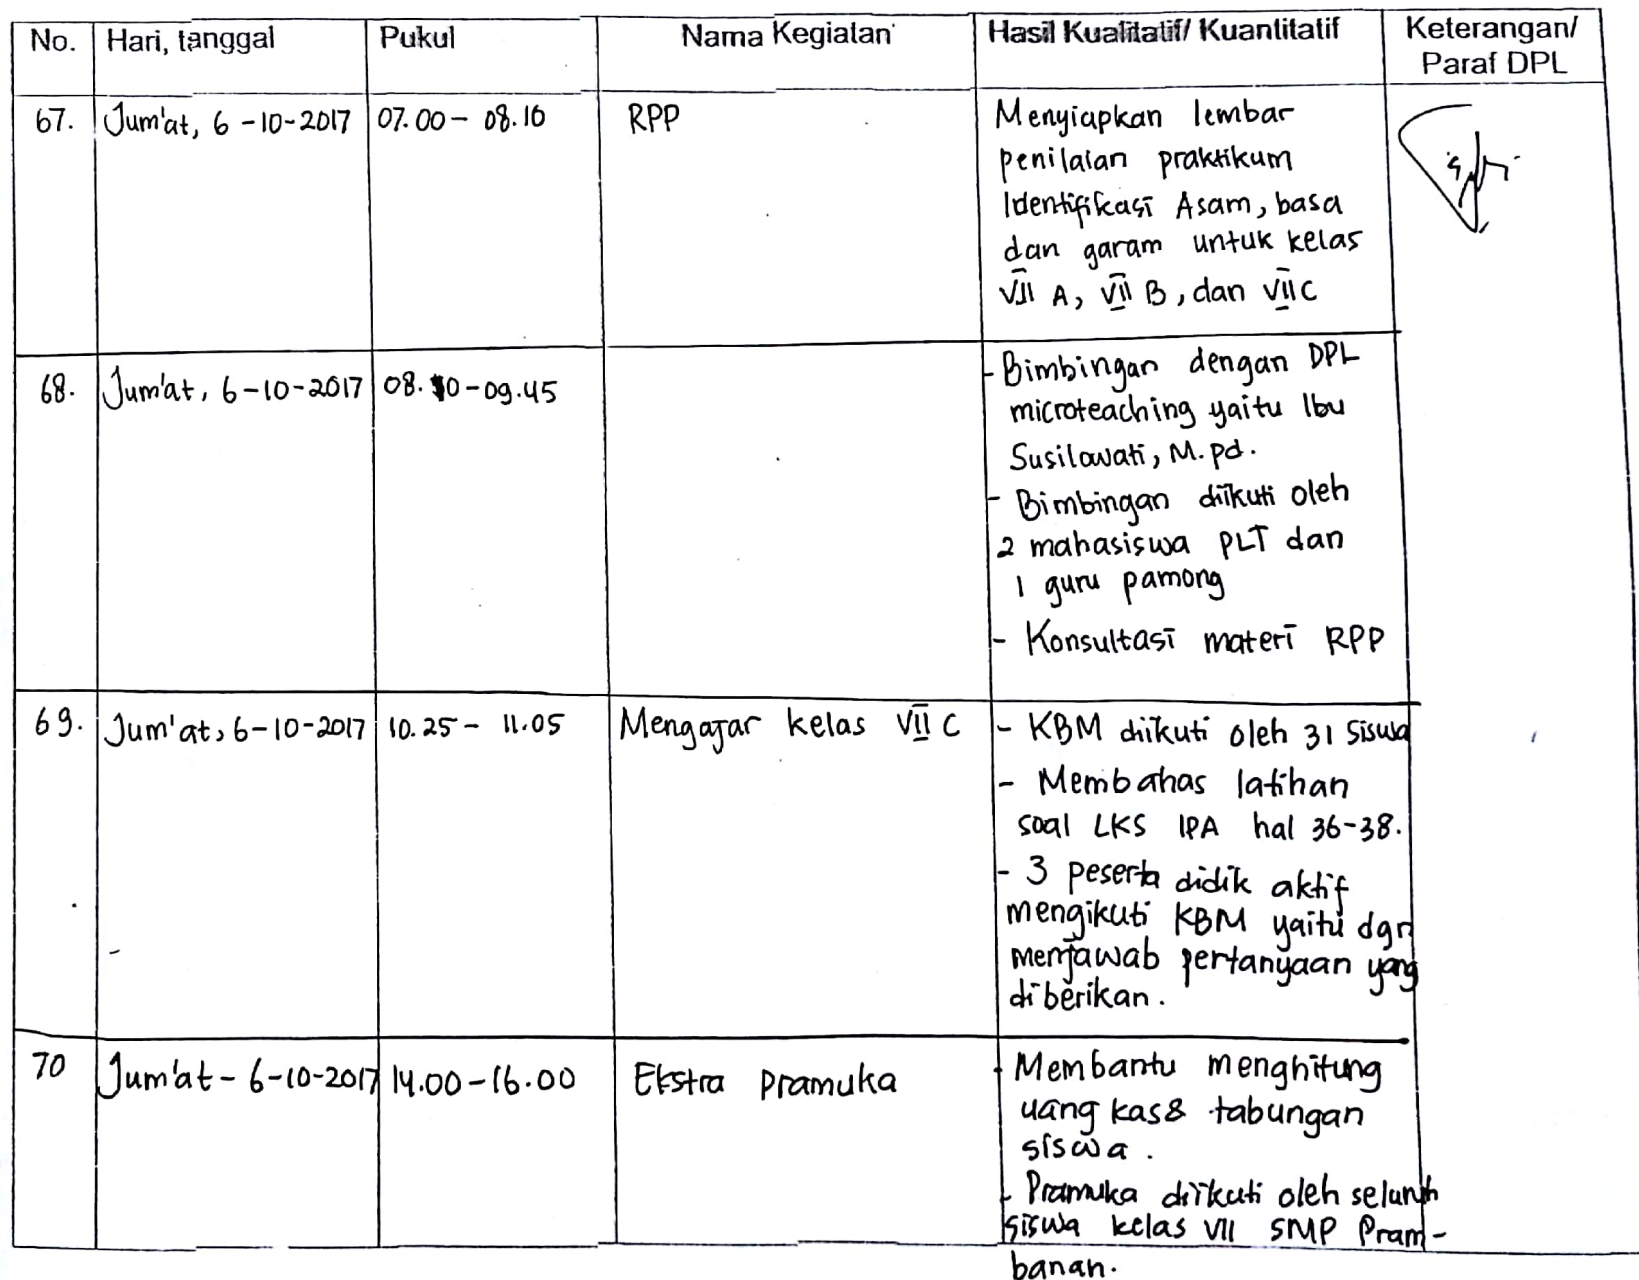 No. Hari, tanggal Pukul Nama Kegiatan Hasil Kualitatif/ Kuantitatif Keterangan/
Paraf DPL
67. Jum'at, 6-10-2017 07.00 - 08.10 RPP Menyiapkan lembar
penilaian praktikum
Identifikasi Asam, basa
dan garam untuk kelas
VII A, VII B, dan VII C
68. Jum'at, 6-10-2017 08.10-09.45 - Bimbingan dengan DPL
microteaching yaitu Ibu
Susilowati, M.pd.
- Bimbingan diikuti oleh
2 mahasiswa PLT dan
1 guru pamong
- Konsultasi materi RPP
69. Jum'at, 6-10-2017 10.25 - 11.05 Mengajar kelas VII C - KBM diikuti oleh 31 siswa
- Membahas latihan
soal LKS IPA hal 36-38.
- 3 peserta didik aktif
mengikuti KBM yaitu dgn
menjawab pertanyaan yang
diberikan.
70 Jum'at - 6-10-2017 14.00-16.00 Ekstra pramuka - Membantu menghitung
uang kas & tabungan
siswa.
- Pramuka diikuti oleh seluruh
siswa kelas VII SMP Pram-
banan.